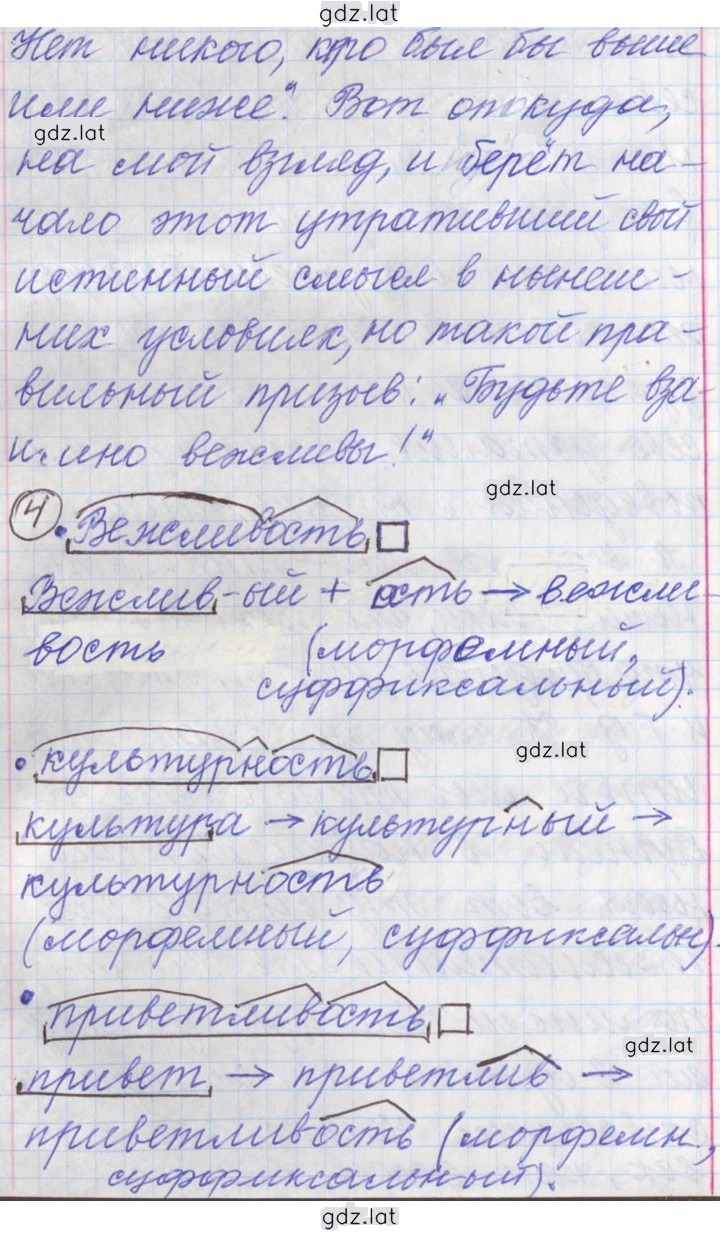 gdz.lat
Нет никого, кто был бы выше
или ниже". Вот откуда,
gdz.lat
на мой взгляд, и берёт на-
чало этот утративший свой
истинный смысл в нынеш-
них условиях, но такой пра-
вильный призыв: „Будьте вза-
имно вежливы!"
gdz.lat
4 • Вежливость
Вежлив-ый + ость → вежли-
вость (морфемный,
суффиксальный).
• культурность
gdz.lat
культура → культурный →
культурность
(морфемный, суффиксальн).
• приветливость
gdz.lat
привет → приветлив →
приветливость (морфемн,
суффиксальный).
gdz.lat